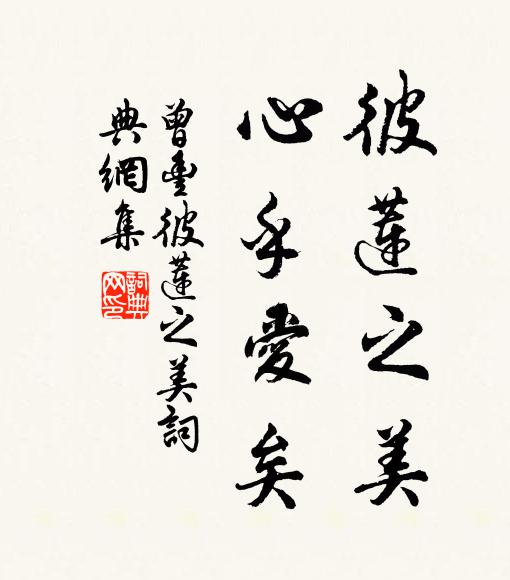 彼蓮之美
心乎愛矣
曾豐彼蓮之美詞
典網集
詞典
网印